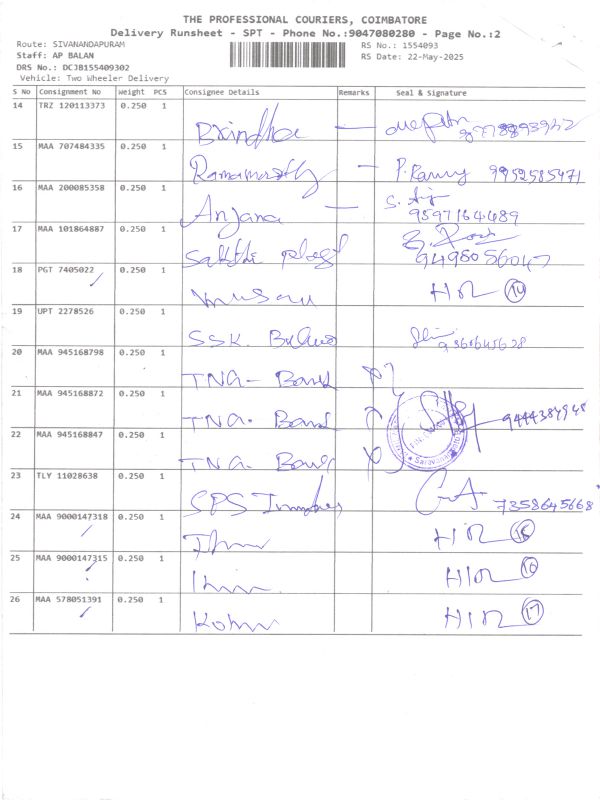 THE PROFESSIONAL COURIERS, COIMBATORE
Delivery Runsheet - SPT - Phone No.:9047080280 - Page No.:2
Route: SIVANANDAPURAM
RS No.: 1554093
Staff: AP BALAN
RS Date: 22-May-2025
DRS No.: DCJB155409302
Vehicle: Two Wheeler Delivery
S No Consignment No weight PCS Consignee Details Remarks Seal & Signature
14 TRZ 120113373 0.250 1
Brindha
15 MAA 707484335 0.250 1
Ramamoorthy P. Ramy 9952585471
16 MAA 200085358 0.250 1
Anjana 9597164489
17 MAA 101864887 0.250 1
Sakthi 9495056047
18 PGT 7405022 0.250 1
14
19 UPT 2278526 0.250 1
SSK.
20 MAA 945168798 0.250 1
TNG - Bank
21 MAA 945168872 0.250 1
TNG - Bank 9444384948
22 MAA 945168847 0.250 1
TNG - Bank
23 TLY 11028638 0.250 1
SPS 7358645668
24 MAA 9000147318 0.250 1
25 MAA 9000147315 0.250 1
10
26 MAA 578051391 0.250 1
17